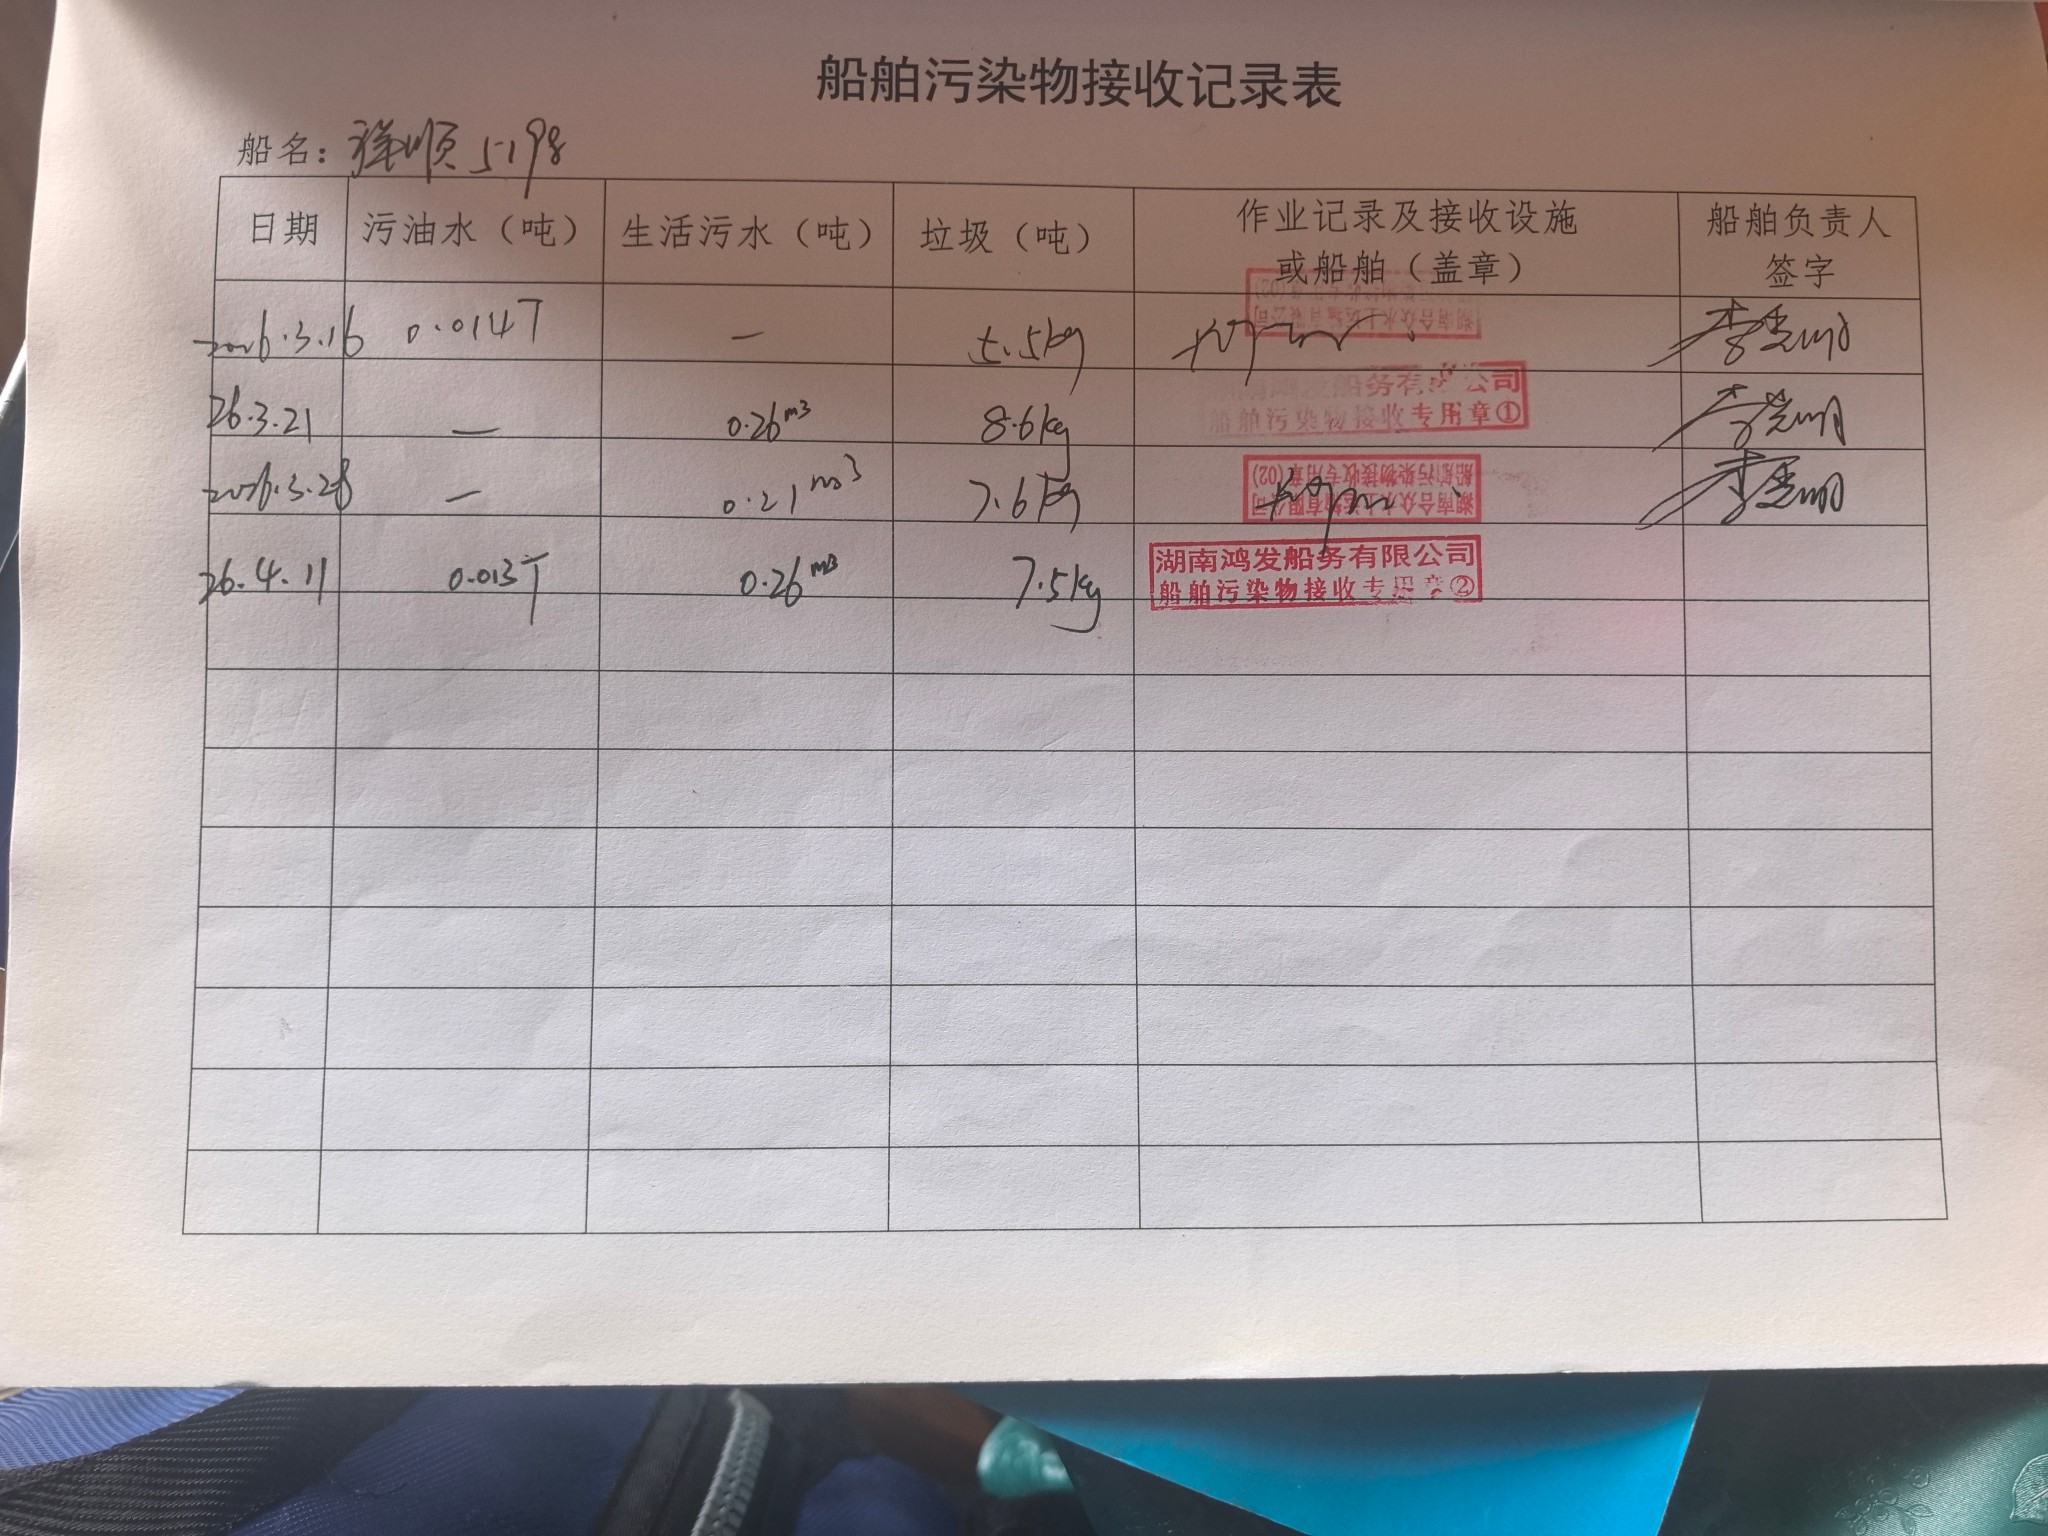 船舶污染物接收记录表
船名：祥顺5198
日期 污油水（吨） 生活污水（吨） 垃圾（吨） 作业记录及接收设施或船舶（盖章） 船舶负责人签字
2026.3.16 0.014T — 5.5kg
湖南合众水上运输有限公司
26.3.21 — 0.26m3 8.6kg
湖南鸿发船务有限公司
船舶污染物接收专用章①
2026.3.28 — 0.21m3 7.6kg
湖南合众水上运输有限公司
船舶污染物接收专用章(02)
26.4.11 0.013T 0.26m3 7.5kg
湖南鸿发船务有限公司
船舶污染物接收专用章②